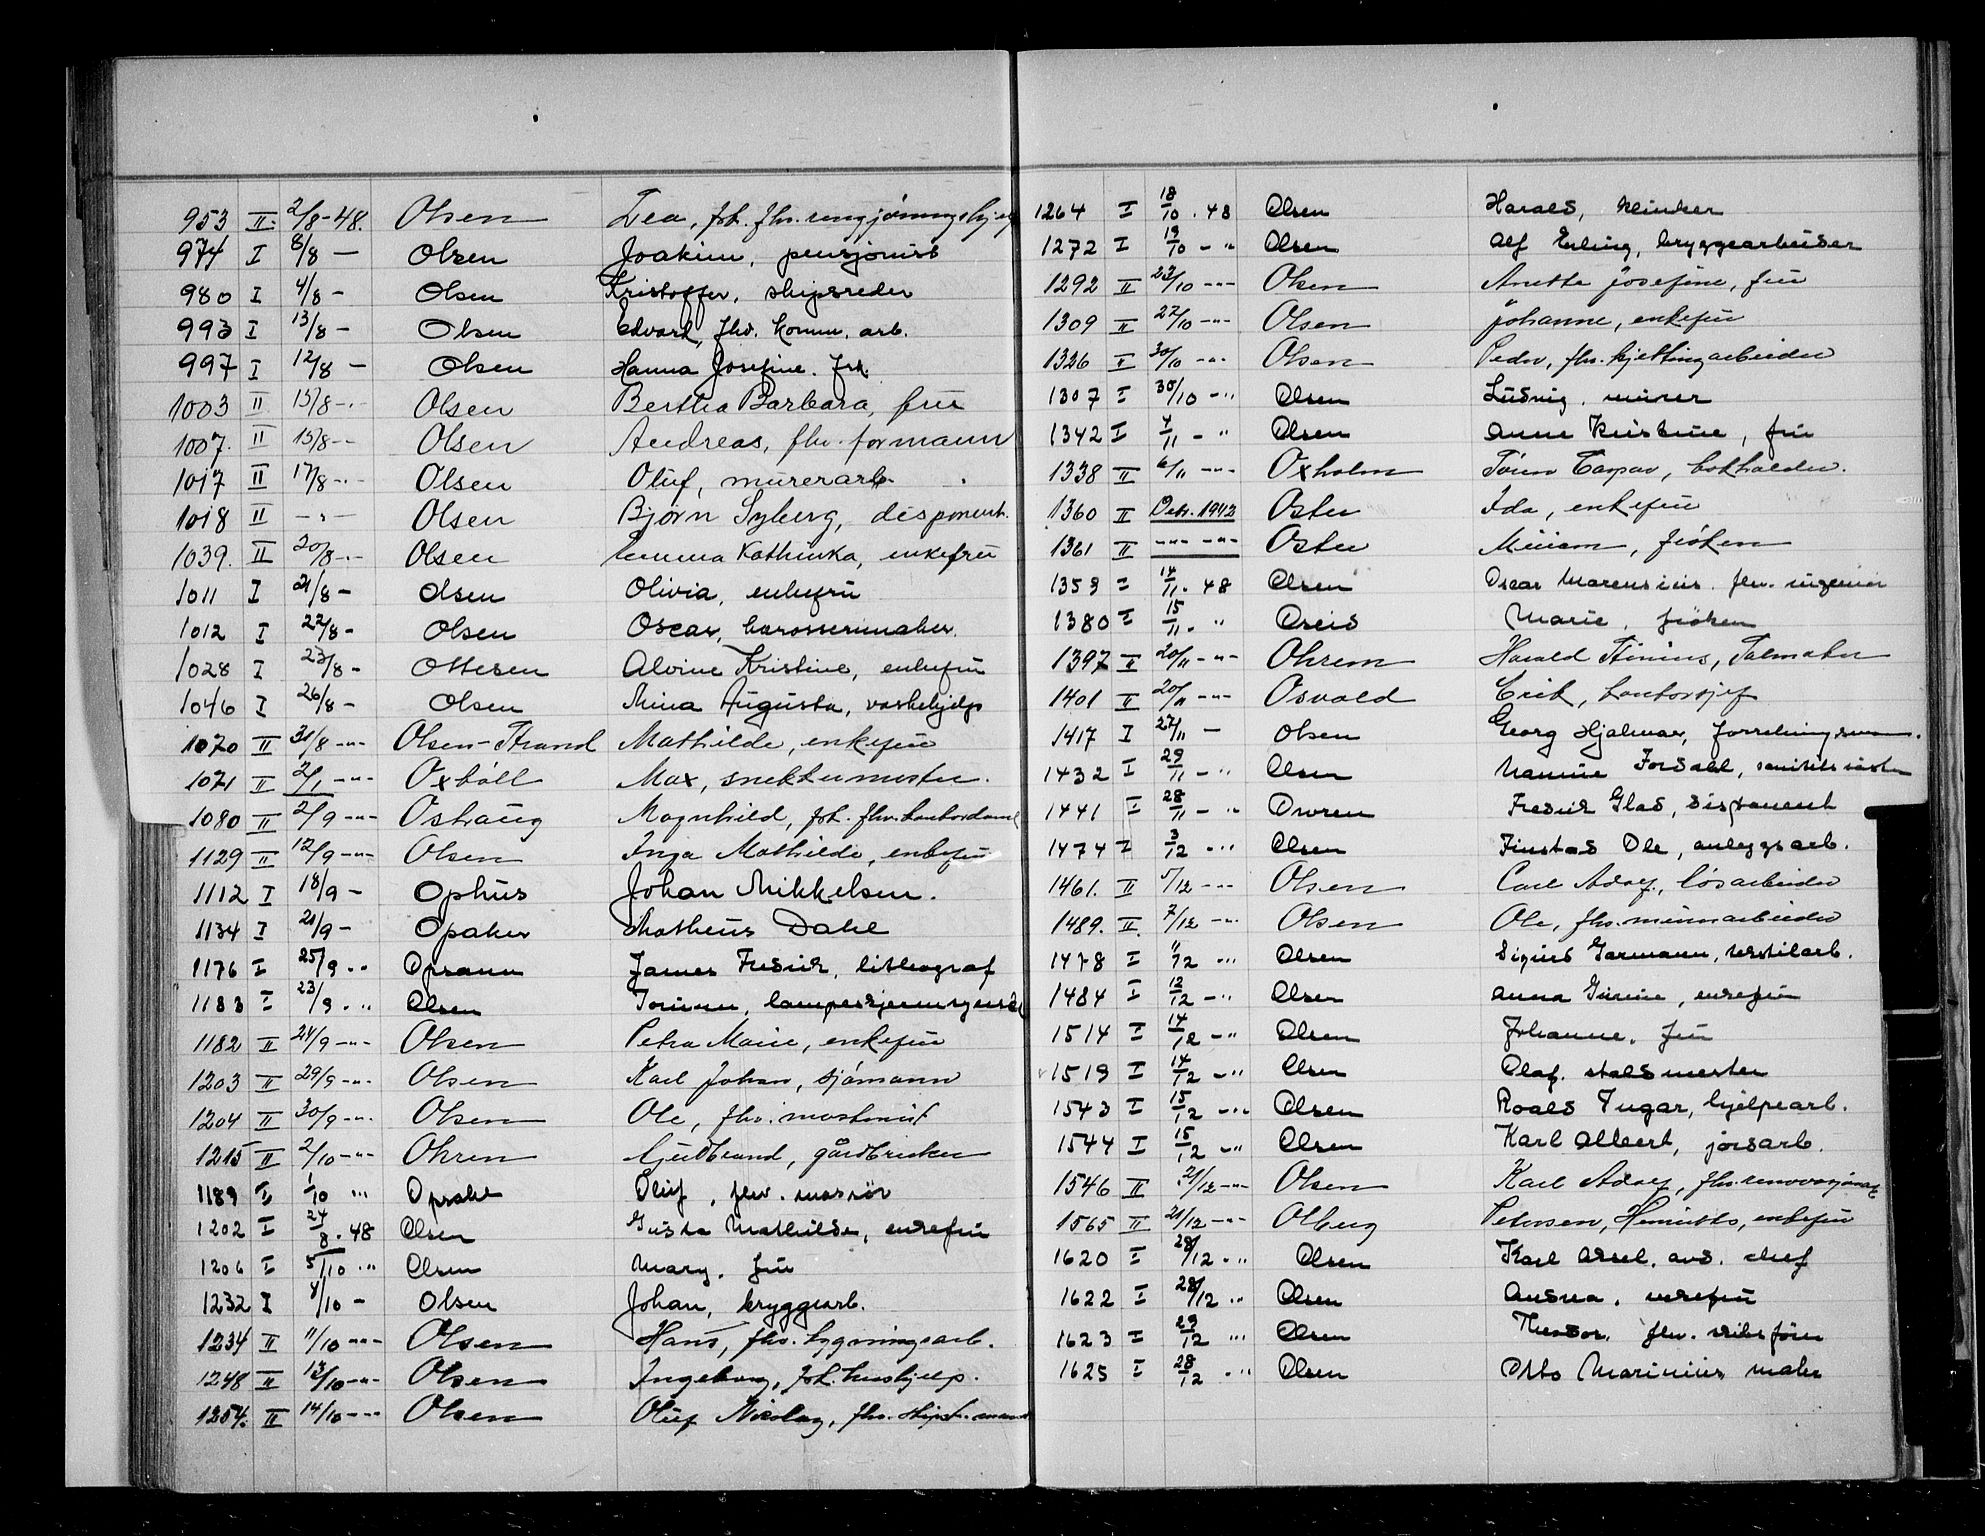 953 II 2/8-48. Olsen Lea, frk. fhv. rengjøringshjelp
974 I 8/8 — Olsen Joakim, pensjonist
980 I 4/8 - Olsen Kristoffer, skipsreder
993 I 13/8 - Olsen Edvard, fhv. komm. arb.
997 I 12/8 - Olsen Hanna Josefine. frk.
1003 II 15/8 -.- Olsen Bertha Barbara, frue
1007. II 15/8 -.- Olsen Andreas, fhv. formann
1017 II 17/8 -.- Olsen Oluf, murerarb.
1018 II -"- Olsen Bjørn Syberg, disponent.
1039. II 20/8 -.- Olsen Emma Kathinka, enkefru
1011 I 21/8 - Olsen Olivia, enkefru
1012 I 22/8 - Olsen Oscar, karosserimaker.
1028 I 23/8 - Ottesen Alvine Kristine, enkefru
1046 I 26/8 - Olsen Mina Augusta, vaskehjelp
1070 II 31/8 -"- Olsen-Strand Mathilde, enkefru
1071 II 2/1 -"- Oxbóll Max, snekkermester.
1080 II 2/9 -"- Osthaug Magnhild, frk. fhv. kontordame
1129 II 12/9 -"- Olsen Inga Mathilde, enkefru
1112 I 18/9 - Ophus Johan Mikkelsen.
1134 I 21/9 - Opaker Matheus Dahl
1176 I 25/9 " Opsann James Fredrik, litograf
1183 I 23/9 . " Olsen lampeskjermsyerske
1182 II 24/9 -"- Olsen Petra Marie, enkefru
1203 II 29/9 -"- Olsen Karl Johan, sjómann
1204 II 30/9 -"- Olsen Ole, fhv. maskinist
1215 II 2/10 -"- Ohren Gudbrand, gårdbruker
1189 I 1/10 "' Opsahl Oluf, fhv. massör
1202 I 24/8 . 48 Olsen Gusta Mathilde, enkefru
1206 I 5/10 . " Olsen Mary. fru
1232 I 4/10 - Olsen Johan, bryggearb.
1234 II 11/10 -"- Olsen Hans, fhv. bygningsarb.
1248 II 13/10 -"- Olsen Ingeborg, frk. hushjelp.
1254. II 14/10 -"- Olsen Oluf Nicolay, fhv.
1264 I 18/10 . 48 Olsen Harald, klinker
1272 I 19/10 - " Olsen Alf Erling, bryggearbeider
1292 II 23/10 -"- Olsen Anette Josefine, fru
1309 II 27/10 -"- Olsen Johanne, enkefru
1326 II 30/10 -"- Olsen Peder, fhv. kjettingarbeider
1307 I 30/10 - " Olsen Ludvig. murer
1342 I 4/11 - " Olsen Anne Kristine, fru
1338 II 6/11 -"- Oxholm Caspar, bokholder.
1360 II Debr. 1942 Oster Ida, enkefru
1361 II -"- -"- Oster Miriam, frøken
1353 I 14/11 . 48 Olsen Oscar Marensius. fhv. ingeniør
1380 I 15/11 . " Oreid Marie. frøken
1397 II 20/11 -"- Ohrem Harald Salmaker
1401 II 20/11 -"- Osvold Erik, kontorsjef
1417 I 27/11 - Olsen Georg Hjalmar, forretningsmann.
1432 I 29/11 - " Olsen Nannie Fordahl,
1441 I 28/11 - " Owren Fredrik Glad, disponent
1474 I 3/12 . " Olsen Finstad Ole, anleggsarb.
1461. II 5/12 -"- Olsen Carl Adolf, løsarbeider
1489. II 7/12 -"- Olsen Ole, fhv. minearbeider
1478 I 11/12 "' Olsen Sigurd Garmann, tekstilarb.
1484 I 12/12 - " Olsen Anna Gurine, enkefru
1514 I 14/12 - " Olsen Johanne. fru
1519 I 14/12 - " Olsen Olaf. stallmester
1543 I 15/12 - " Olsen Roald Ingar, hjelpearb.
1544 I 15/12 - " Olsen Karl Albert, jordarb.
1546 II 21/12 -"- Olsen Karl Adolf, fhv. renovasjonsarb.
1565 II 21/12 -"- Olberg Petersen, Henriette, enkefru
1620 I 28/12 - " Olsen Karl Aksel. avd. chef
1622 I 28/12 " Olsen Andrea. enkefru
1623 I 29/12 "' Olsen Theodor. fhv. skibsfører
1625 I 28/12 . " Olsen Otto Marinius maler